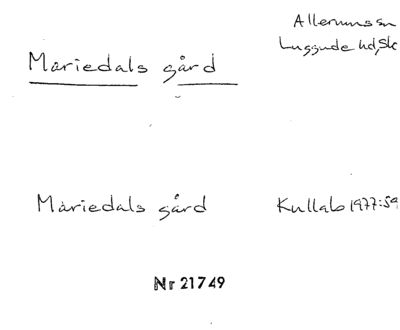 Allerums sn
Mariedals gård
Luggude hd, Sk
Mariedals gård
Kullab 1977:59
Nr 21749